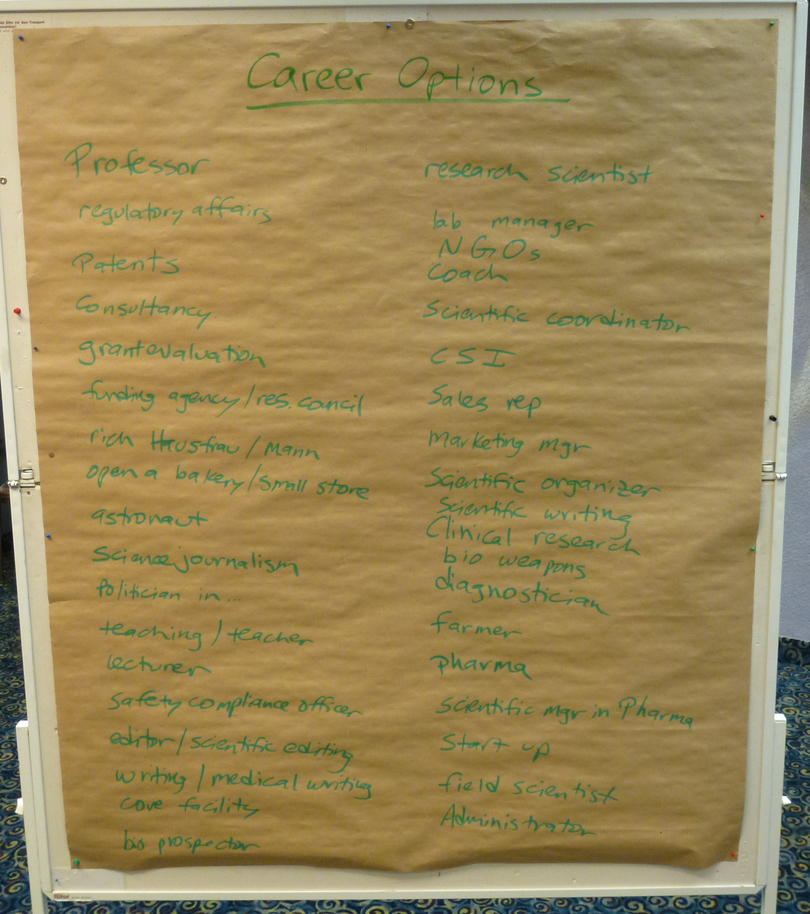 Career Options
Professor
regulatory affairs
Patents
Consultancy
grant evaluation
funding agency / res. council
rich Hausfrau / Mann
open a bakery / small store
astronaut
Science journalism
Politician in...
teaching / teacher
lecturer
Safety compliance officer
editor / scientific editing
writing / medical writing
core facility
bio prospector
research scientist
lab manager
NGOs
Coach
Scientific coordinator
CSI
Sales rep
Marketing mgr
Scientific organizer
Scientific writing
Clinical research
bio weapons
diagnostician
farmer
pharma
scientific mgr in Pharma
Start up
field scientist
Administrator